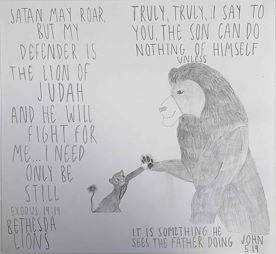 SATAN MAY ROAR,
BUT MY
DEFENDER IS
THE LION OF
JUDAH
AND HE WILL
FIGHT FOR
ME... I NEED
ONLY BE
STILL
EXODUS 14:14
BETHESDA
LIONS
TRULY, TRULY, I SAY TO
YOU, THE SON CAN DO
NOTHING OF HIMSELF
UNLESS
IT IS SOMETHING HE
SEES THE FATHER DOING
JOHN
5:19